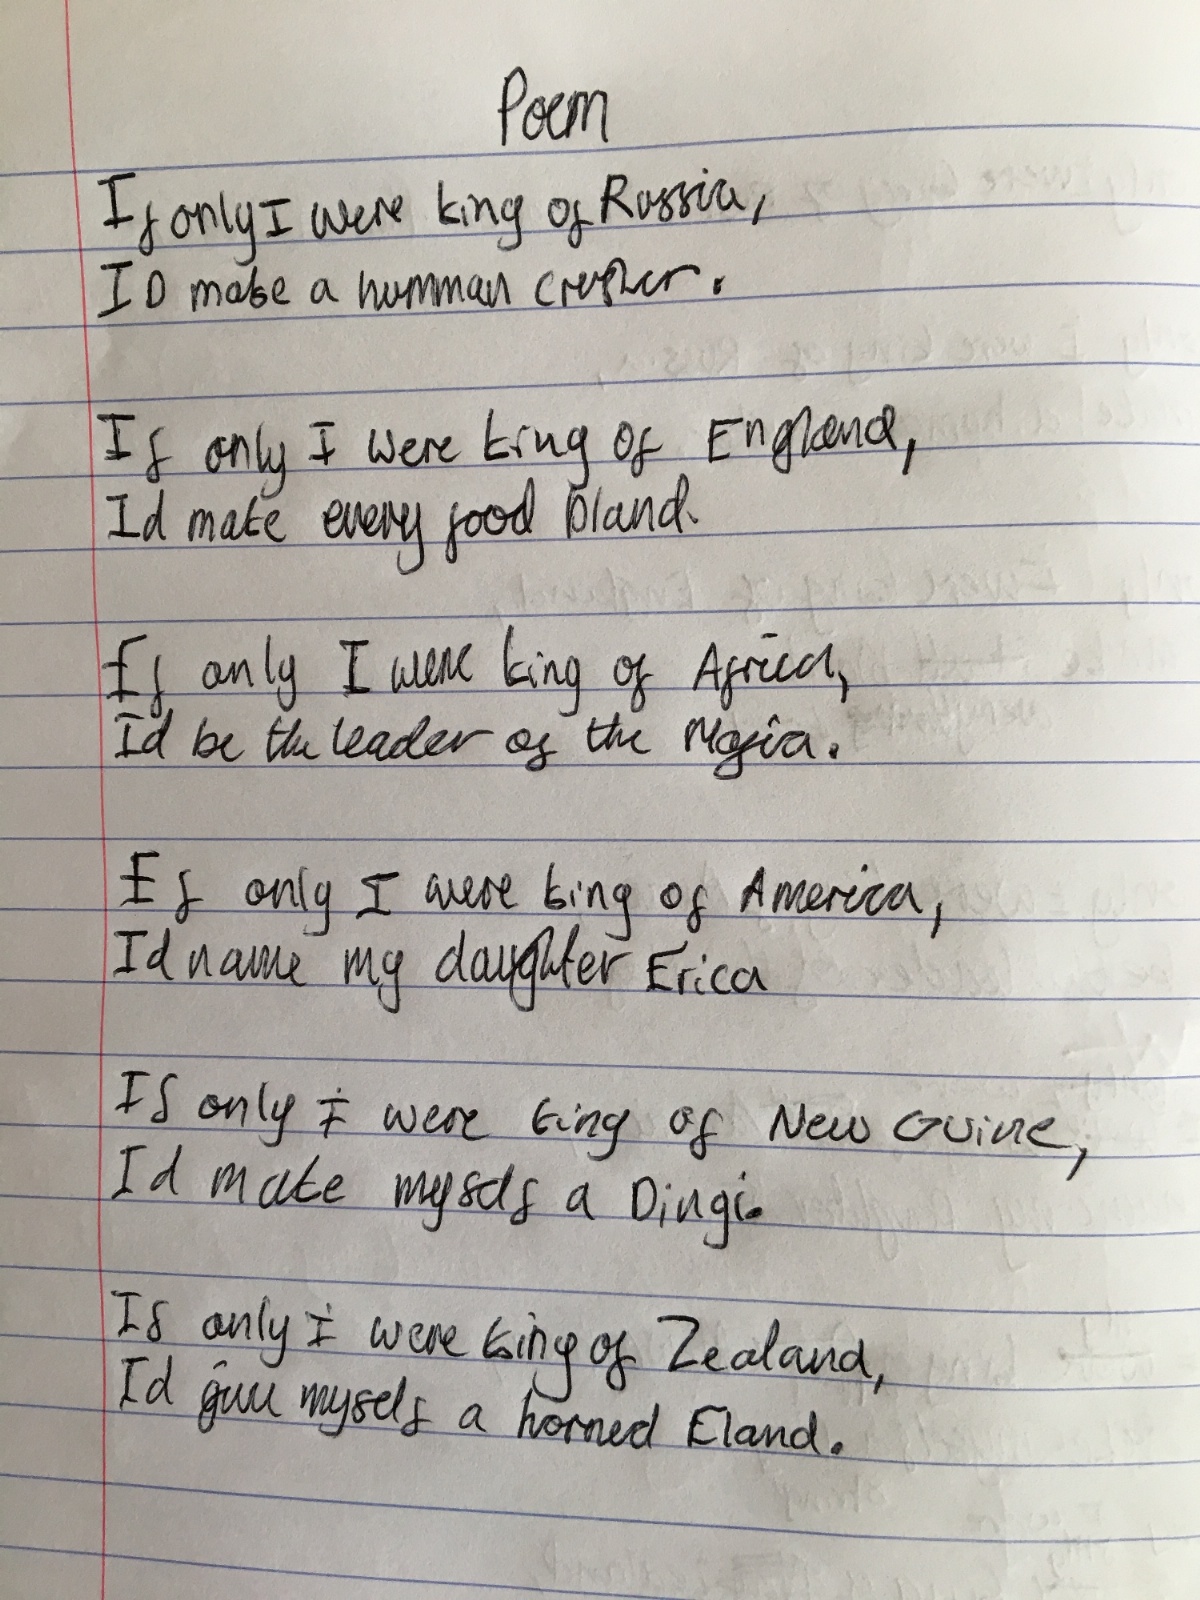 Poem
If only I were king of Russia,
ID make a humman crusher.
If only I were king of England,
Id make every food bland.
If only I were king of Africa,
Id be the leader of the Mafia.
If only I were king of America,
Id name my daughter Erica
If only I were king of New Guine,
Id make myself a Dingi.
If only I were king of Zealand,
Id give myself a horned Eland.